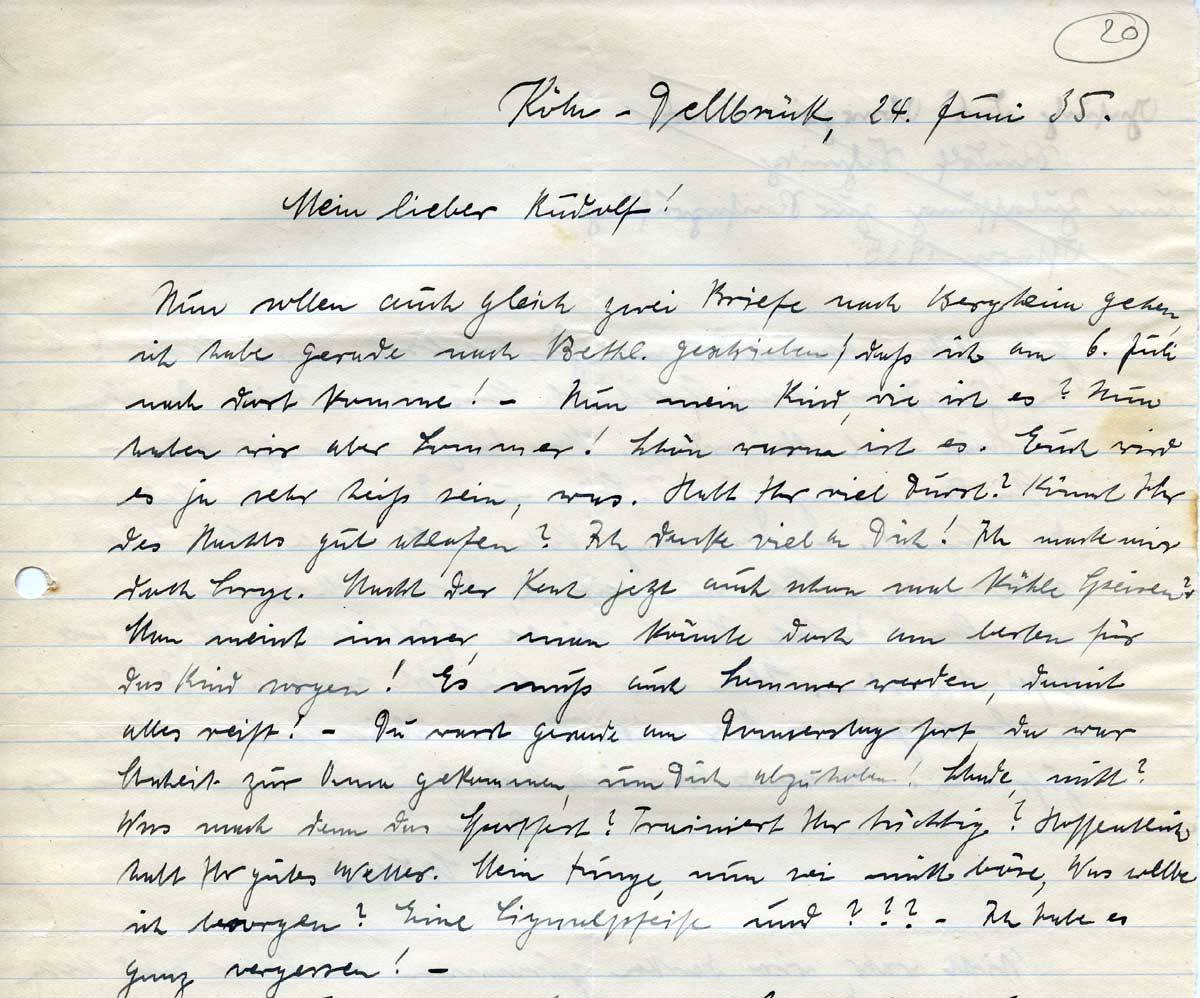 20
Köln - Dellbrück, 24. Juni 35.
Mein lieber Rudolf!
Nun sollen auch gleich zwei Briefe nach Bergheim gehen,
ich habe gerade nach Bethl. geschrieben, daß ich am 6. Juli
nach dort komme! - Nun mein Kind, wie ist es? Nun
haben wir aber Sommer! Schön warm ist es. Euch wird
es ja sehr heiß sein, was. Habt Ihr viel Durst? Könnt Ihr
des Nachts gut schlafen? Ich denke viel an Dich! Ich mach mir
doch Sorge. Macht der Koch jetzt auch schon mal kühle Speisen?
Man meint immer, man könnte doch am besten für
das Kind sorgen! Es muß auch Sommer werden, damit
alles reift! - Du warst gerade am Donnerstag fort, da war
zur Oma gekommen, um Dich abzuholen! Schade, nicht?
Was mach denn das Sportfest? Trainiert Ihr tüchtig? Hoffentlich
habt Ihr gutes Wetter. Mein Junge, nun sei nicht böse, Was sollte
ich besorgen? Eine Signalpfeife und ??? - Ich habe es
ganz vergessen! -